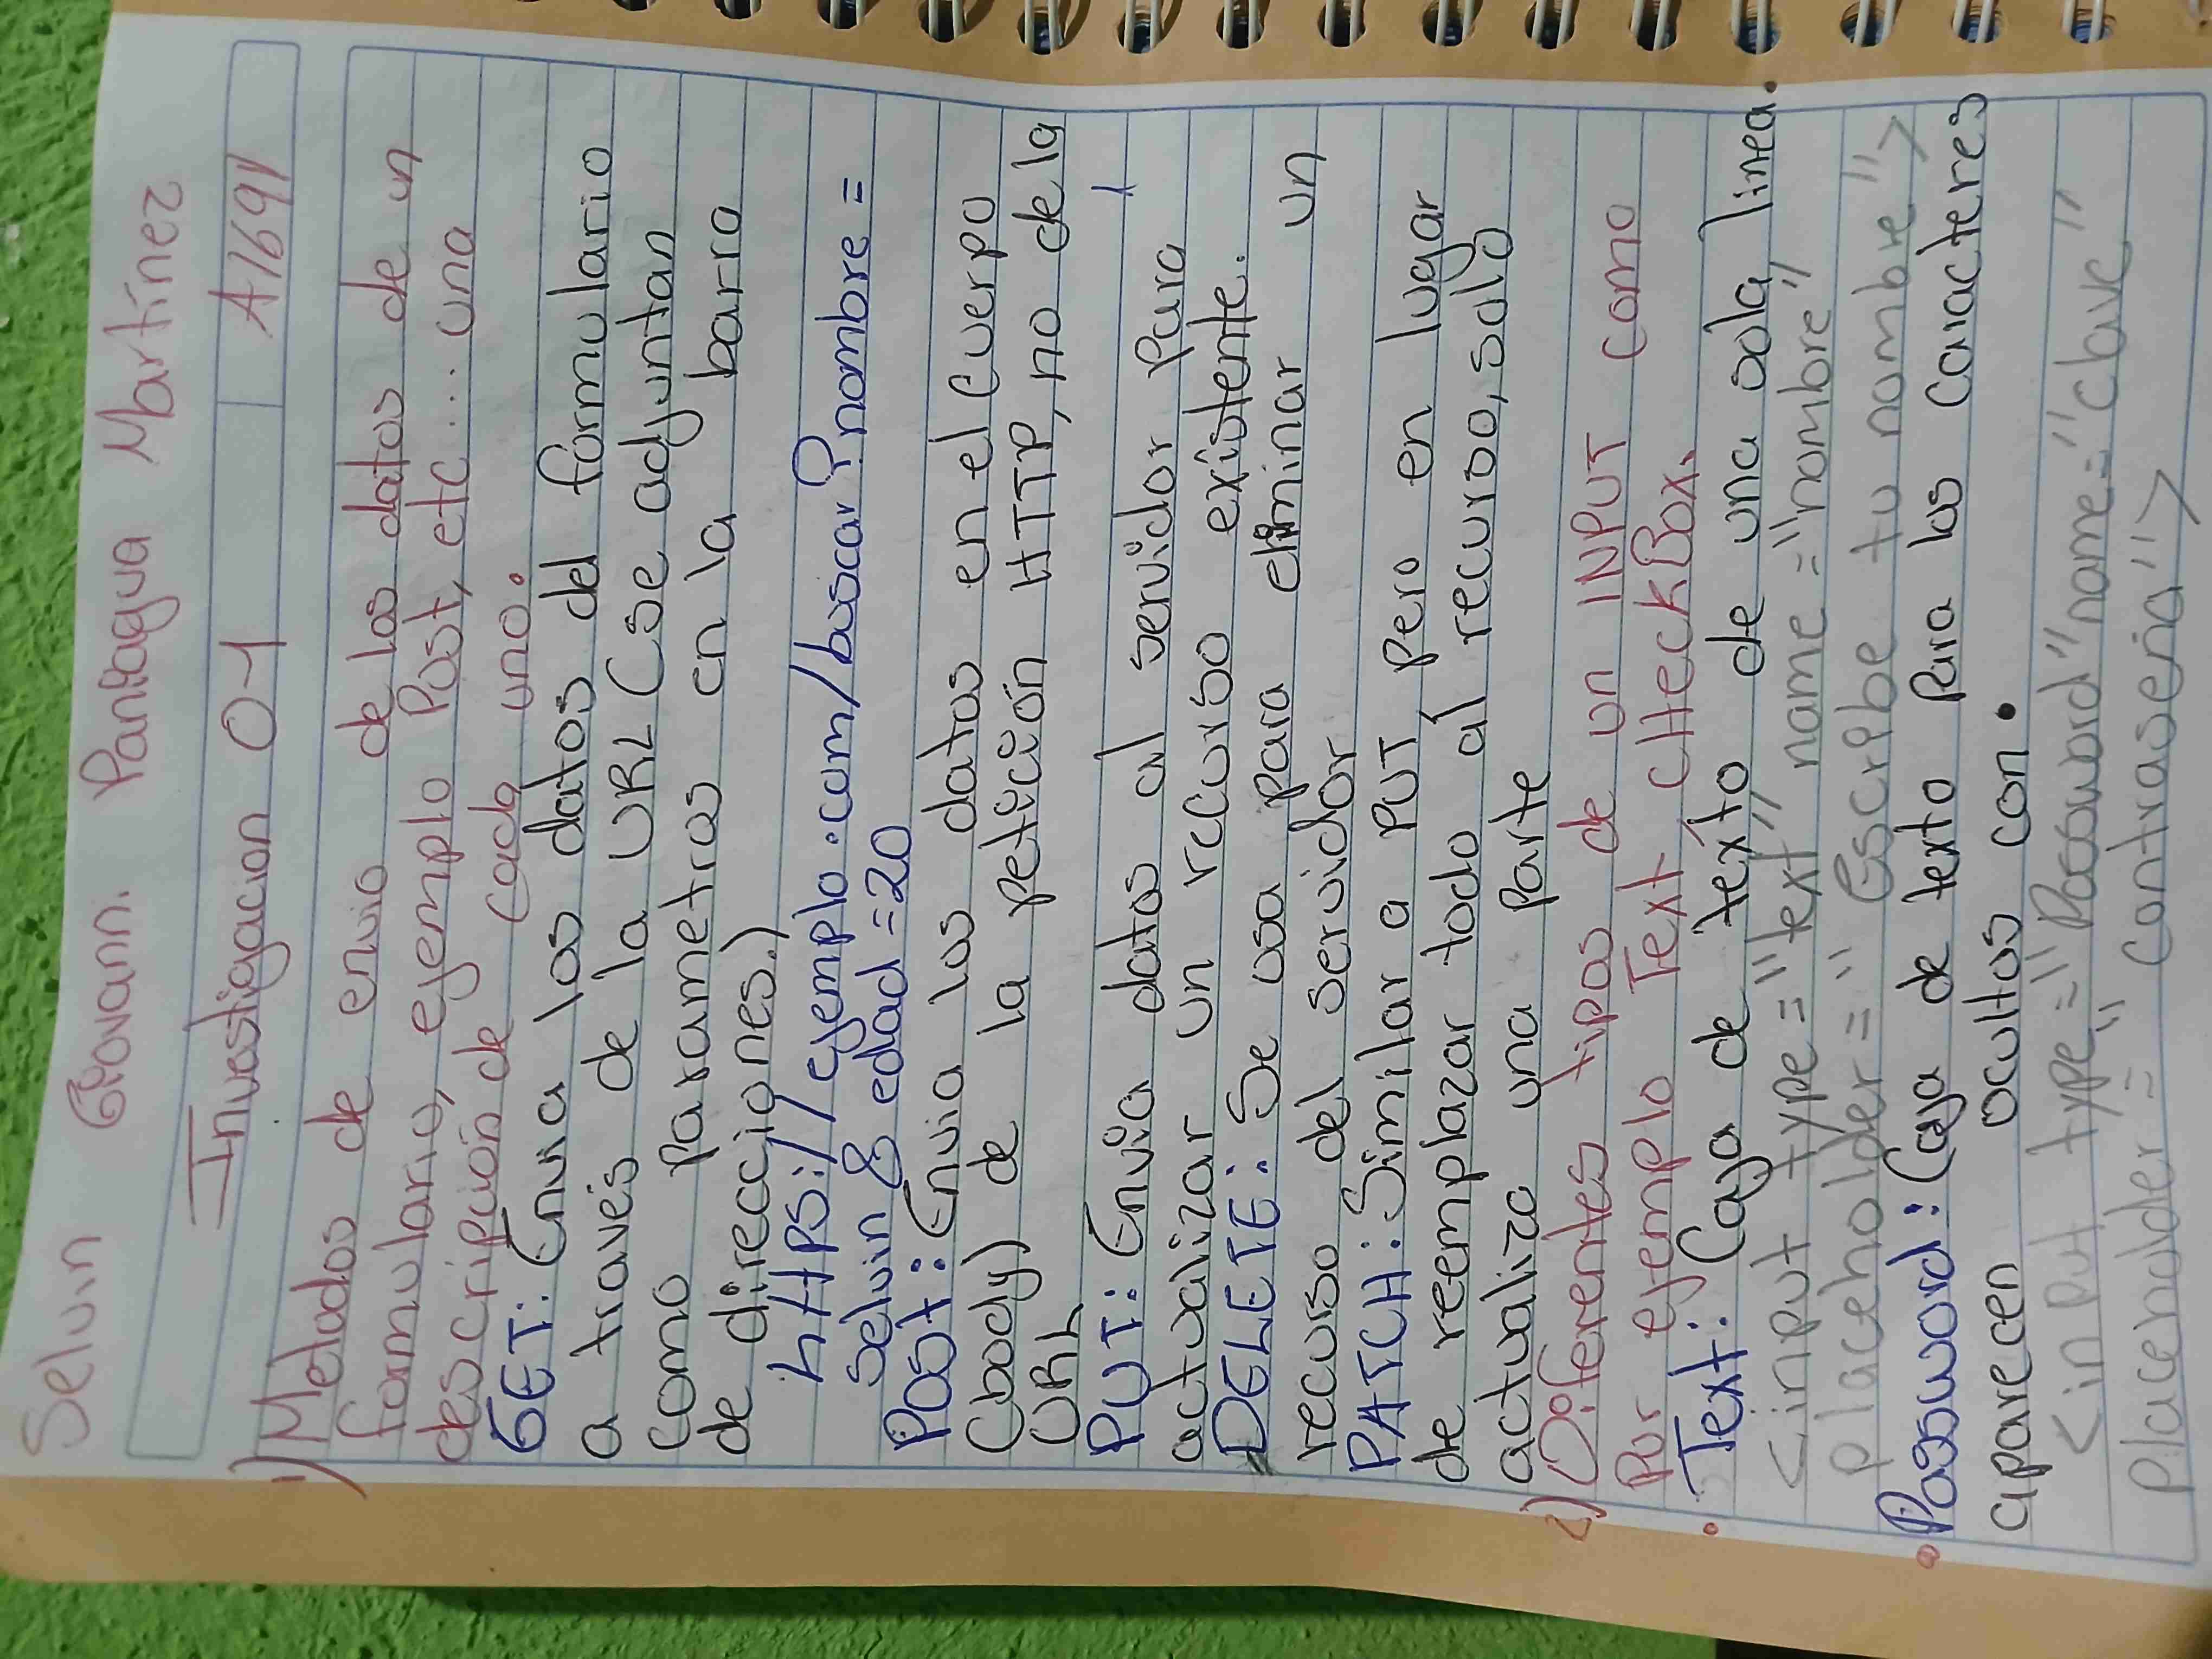 Selvin Giovanni Paniagua Martínez
Investigacion 0-1 A1691
1) Metodos de envio de los datos de un
formulario, ejemplo Post, etc.... una
descripción de cada uno.
GET: Envia los datos del formulario
a través de la URL (se adjuntan
como parametros en la barra
de direcciones.)
https://ejemplo.com/buscar?nombre=
selvin & edad=20
Post: Envia los datos en el cuerpo
(body) de la petición HTTP, no de la
URL
PUT: Envia datos al servidor para
actualizar un recurso existente.
DELETE: Se usa para eliminar un
recurso del servidor
PATCH: Similar a PUT pero en lugar
de reemplazar todo al recurso, solo
actualiza una parte
2) Diferentes tipos de un INPUT como
Por ejemplo Text checkBox.
• Text: Caja de texto de una sola linea.
<input type="text" name="nombre"
placeholder="Escribe tu nombre">
• Password: Caja de texto Para los caracteres
aparecen ocultos con •
<input type="Password" name="clave"
placenolder="contraseña">